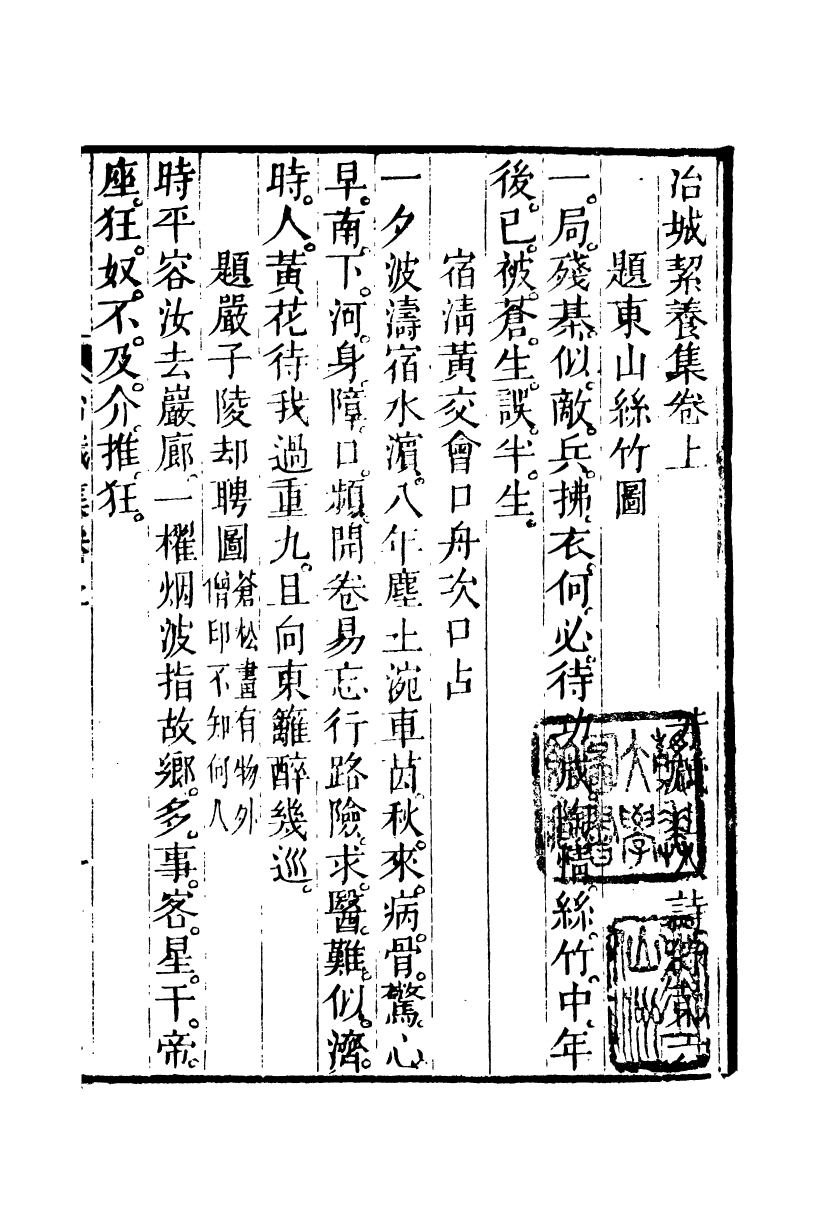 冶城絜養集卷上 詩
題東山絲竹圖
一局殘棊似敵兵拂衣何必待功成陶情絲竹中年
後已被蒼生誤半生
宿淸黃交會口舟次口占
一夕波濤宿水濵八年塵土涴車茵秋來病骨驚心
早南下河身障口頻開卷易忘行路險求醫難似濟
時人黃花待我過重九且向東籬醉幾巡
題嚴子陵却聘圖蒼松畫有物外
僧印不知何人
時平容汝去巖廊一櫂烟波指故鄉多事客星干帝
座狂奴不及介推狂
大學